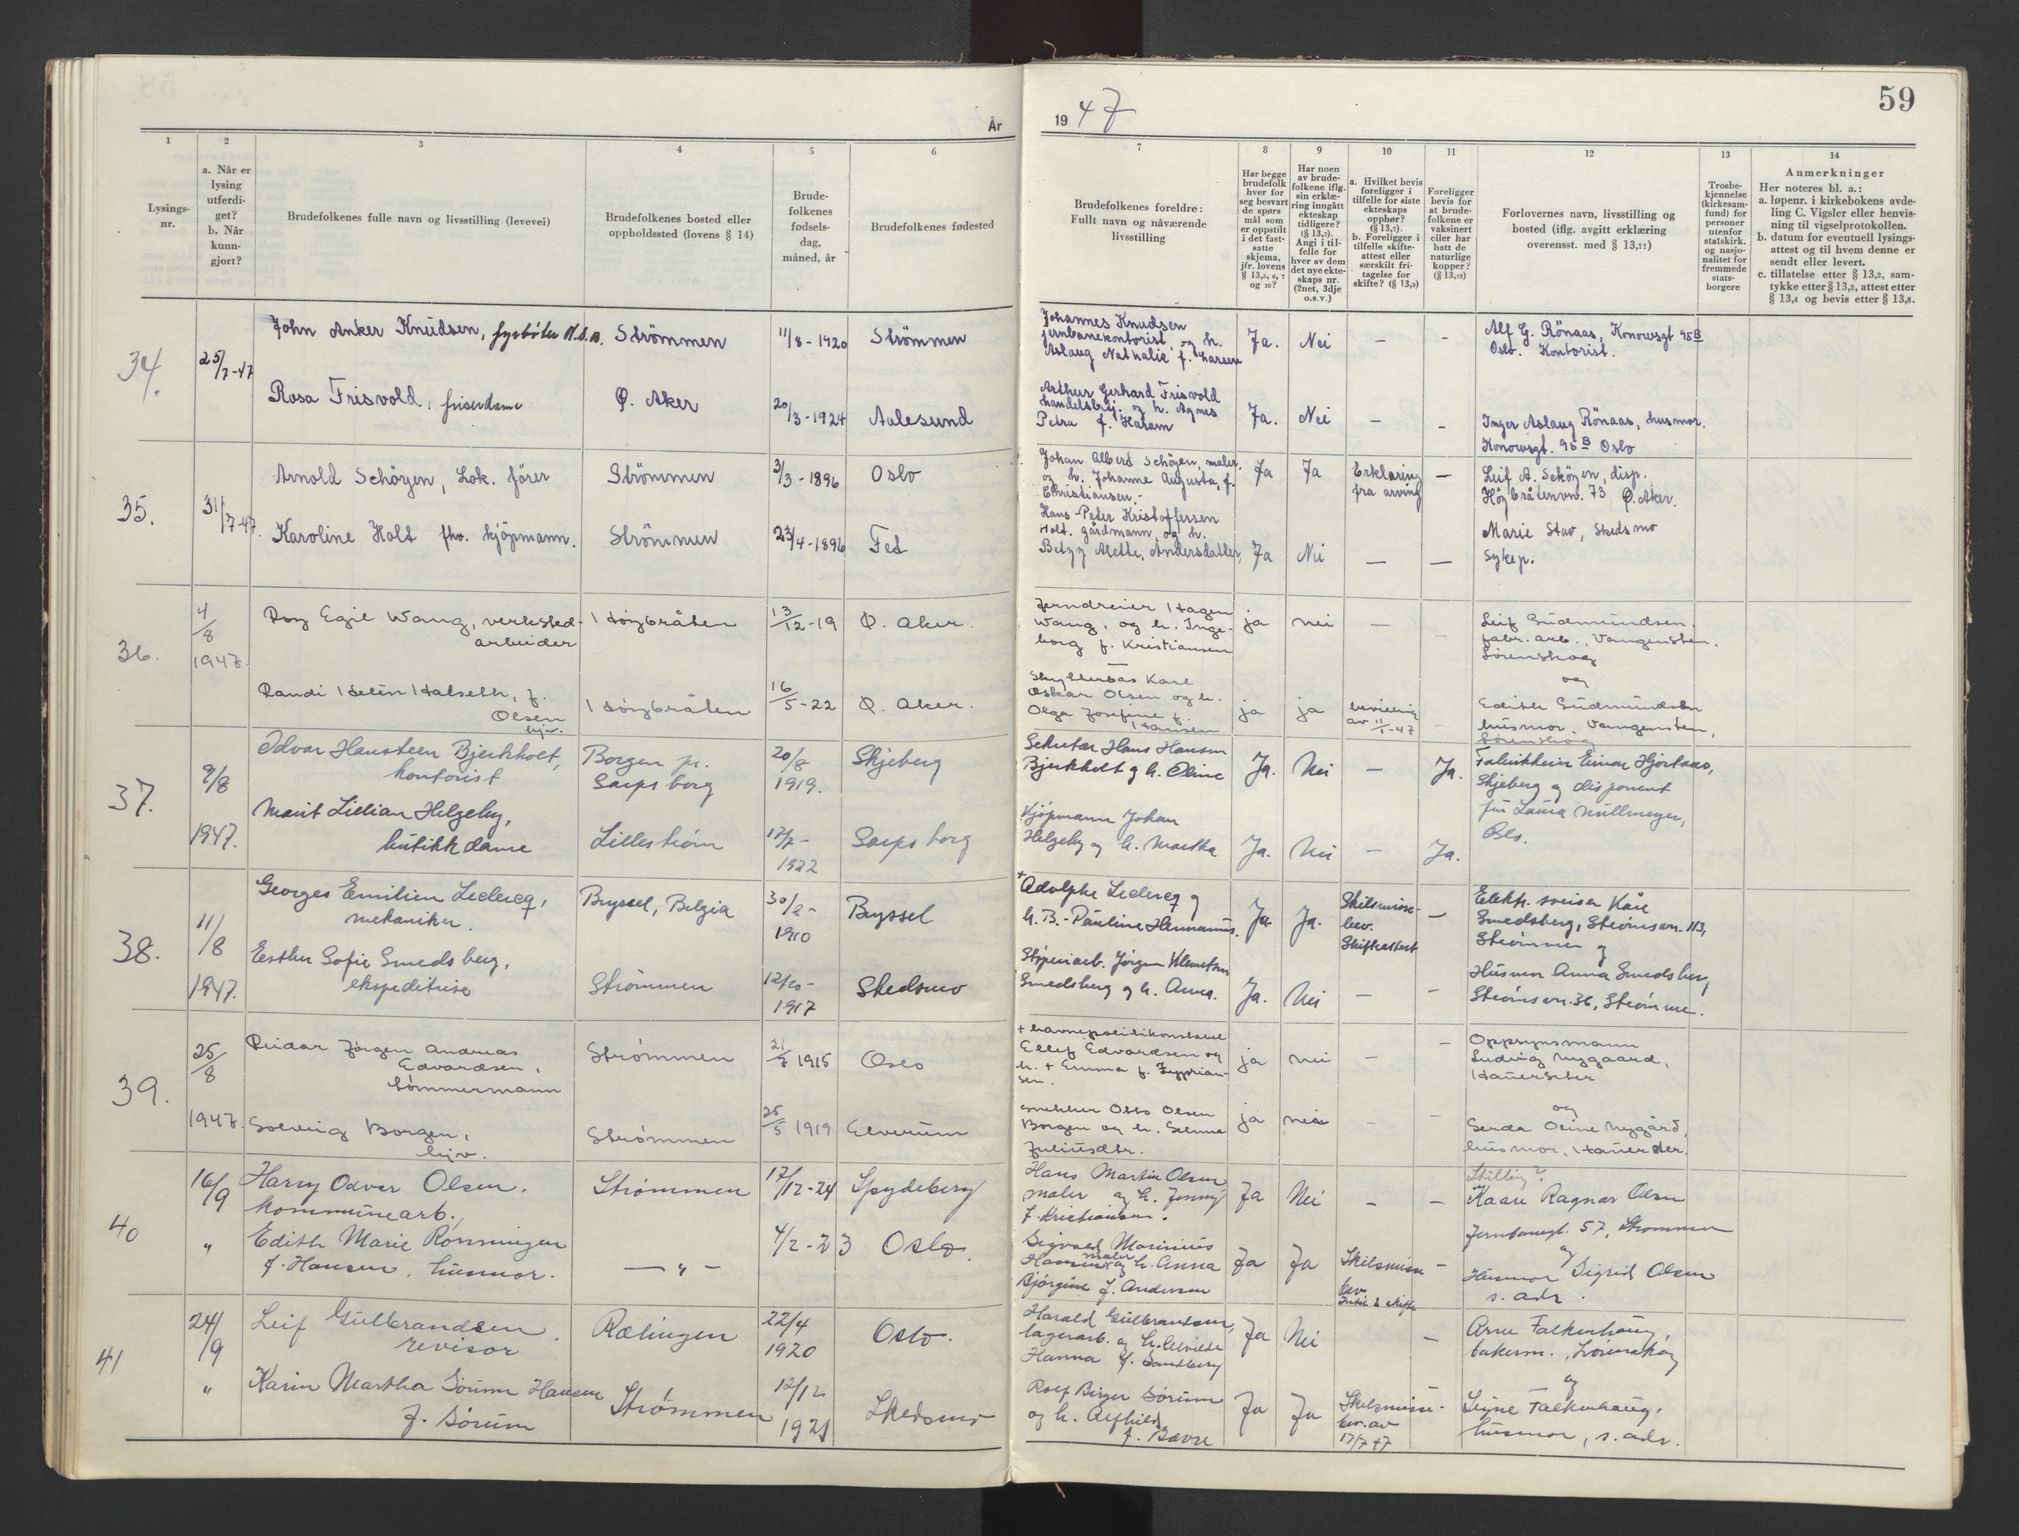 År
1947
59
1
2
3
4
5
6
7
8
9
10
11
12
13
14
Lysings-
nr.
a. Når er
lysing
utferdi-
get?
b. Når
kunn-
gjort?
Brudefolkenes fulle navn og livsstilling (levevei)
Brudefolkenes bosted eller
oppholdssted (lovens § 14)
Brude-
folkenes
fødsels-
dag,
måned, år
Brudefolkenes fødested
Brudefolkenes foreldre:
Fullt navn og nåværende
livsstilling
Har begge
brudefolk
hver for
seg besvart
de spørs
mål som
er oppstilt
i det fast-
satte
skjema,
jfr. lovens
§ 13,5, 6, 7
og 10?
Har noen
av brude-
folkene iflg.
sin erklæ-
ring inngått
ekteskap
tidligere?
(§ 13,7).
Angi i til-
felle for
hver av dem
det nye ekte-
skaps nr.
(2net, 3dje
o.s.v.)
a. Hvilket bevis
foreligger i
tilfelle for siste
ekteskaps
opphør?
(§ 13,7).
b. Foreligger i
tilfelle skifte-
attest eller
særskilt fri-
tagelse for
skifte? (§ 13,9)
Foreligger
bevis for
at brude-
folkene er
vaksinert
eller har
hatt de
naturlige
kopper?
(§ 13,12)
Forlovernes navn, livsstilling og
bosted (iflg. avgitt erklæring
overensst. med § 13,11)
Trosbe-
kjennelse
(kirkesam-
fund) for
personer
utenfor
statskirk.
og nasjo-
nalitet for
fremmede
stats-
borgere
Anmerkninger
Her noteres bl. a.:
a. løpenr. i kirkebokens avde-
ling C. Vigsler eller henvis-
ning til vigselprotokollen.
b. datum for eventuell lysings-
attest og til hvem denne er
sendt eller levert.
c. tillatelse etter § 13,2, sam-
tykke etter § 13,3, attest etter
§ 13,4 og bevis etter § 13,8.
34.
25/7-47
John Anker Knudsen, fyrbøter N.S.B. Strömmen 11/8-1920 Strömmen
Johannes Knudsen
jernbanekontorist, og h.
Aslaug Nathalie f. Larsen
Ja. Nei — -
Alf G. Rönaas, Konowsgt 95B
Oslo. Kontorist.
Rosa Frisvold, friserdame Ö. Aker 20/3-1924 Aalesund
Arthur Gerhard Frisvold
handelsbtj. og h. Agnes
Petra f. Haram
Ja. Nei — —
Inger Aslaug Rönaas, husmor.
Konowsgt. 95B Oslo
35.
31/7-47.
Arnold Schöyen, Lok. förer Strömmen 3/3-1896 Oslo
Johan Albert Schöyen, maler.
og h. Johanne Augusta, f.
Christiansen.-
Ja Ja Erklæring —
fra arving
Leif A. Schöyen, disp.
Höybråtenvn. 73, Ö. Aker.
Karoline Holt fhv. kjöpmann. Strömmen 23/4-1896 Fet
Hans-Peter Kristoffersen
Holt. gårdmann, og h.
Betzy Alette, Andersdatter,
Ja Nei — —
Marie Stav, Skedsmo
sykep.
36.
4/8
1947.
Roy Egil Wang, verksted-
arbeider
Höybråten 13/12-19 Ö. Aker.
Jerndreier Hagen
Wang, og h. Inge-
borg f. Kristiansen
ja nei - -
Leif Gudmundsen,
fabr. arb., Vangensten,
Lörenskog
og
Randi Helén Halseth, f.
Olsen
hjv.
Höybråten 16/5-22 Ö. Aker.
Oskar Olsen og h.
Olga Josefine f.
Hansen
ja ja bevilling
av 11/1-47
Edith Gudmundsen
husmor. Vangensten,
Lörenskog
37.
9/8
1947.
Idvar Hansteen Bjerkholt,
kontorist
Borgen pr.
Sarpsborg
20/8
1919.
Skjeberg
Sekretær Hans Hansen
Bjerkholt og h. Oline
Ja. Nei — Ja.
Fabrikkeier Einar Hjortaas,
Skjeberg og disponent
frk Laura Müllmeyer,
Oslo.
Marit Lilian Helgeby,
butikkdame
Lillestrøm
17/7-
1922
Sarpsborg
Kjøpmann Johan
Helgeby og h. Martha
Ja. Nei — Ja.
38.
11/8
1947.
Georges Emilien Leclercq,
mekaniker.
Bryssel, Belgia
30/2-
1910
Bryssel
+Adolphe Leclercq og
h. B.-Pauline Hermanns.
Ja. Ja. Skilsmisse-
bev.
Skifteattest
—
Elektr. sveiser Kåre
Smedsberg, Strømsvn. 113,
Strømmen og
Esther Sofie Smedsberg,
ekspeditrise
Strømmen
12/10-
1917
Skedsmo
Støperiarb. Jørgen Klemetsen
Smedsberg og h. Anna.
Ja. Nei — -
Husmor Anna Smedsberg,
Strømsvn. 36, Strømmen.
39.
25/8
1947.
Reidar Jørgen Andreas
Edvardsen,
tømmermann
Strømmen 21/7 1915 Oslo
+ havnepolitikonstabel
Ellef Edvardsen og
h. + Emma f. Zyprian-
sen.
ja nei - -
Oppsynsmann
Ludvig Nygaard,
Haurseter
og
Solveig Borgen,
hjv.
Strømmen 25/5 1919 Elverum
snekker Otto Olsen
Borgen og h. Selma
Juliusdtr.
ja nei - -
Serda Oline Nygård,
husmor, Haurseter.
40
16/9
"
Harry Odvar Olsen.
kommunearb.
Strømmen 17/12-24 Spydeberg
Hans Martin Olsen
maler og h. Jenny
f. Kristiansen.
Ja Nei - -
Stilling?
Kaare Ragnar Olsen
Jernbanegt. 57, Strømmen
og
Edith Marie Rønningen
f. Hansen, husmor.
— " — 4/2-23 Oslo.
Sigvald Marinius
Hansen maler og h. Anna
Bjørgine f. Andersen
Ja Ja Skilsmisse -
bev.
Husmor Sigrid Olsen
s. adr.
41
24/9
"
Leif Gulbrandsen.
revisor
Rælingen 22/4
1920
Oslo.
Harald Gulbrandsen,
lagerarb. og h. Alvilde
Hanna f. Sandberg
Ja Nei -
Arne Falkenhaug,
bakerm., Lörenskog
og
Karin Martha Sørum Hansen
f. Sørum
Strømmen 12/12
1921
Skedsmo
Rolf Birger Sørum
og h. Alfhild
f. Bævre
Ja Ja Skilsmisse-
bev. av
17/7 47
Signe Falkenhaug,
husmor, s. adr.